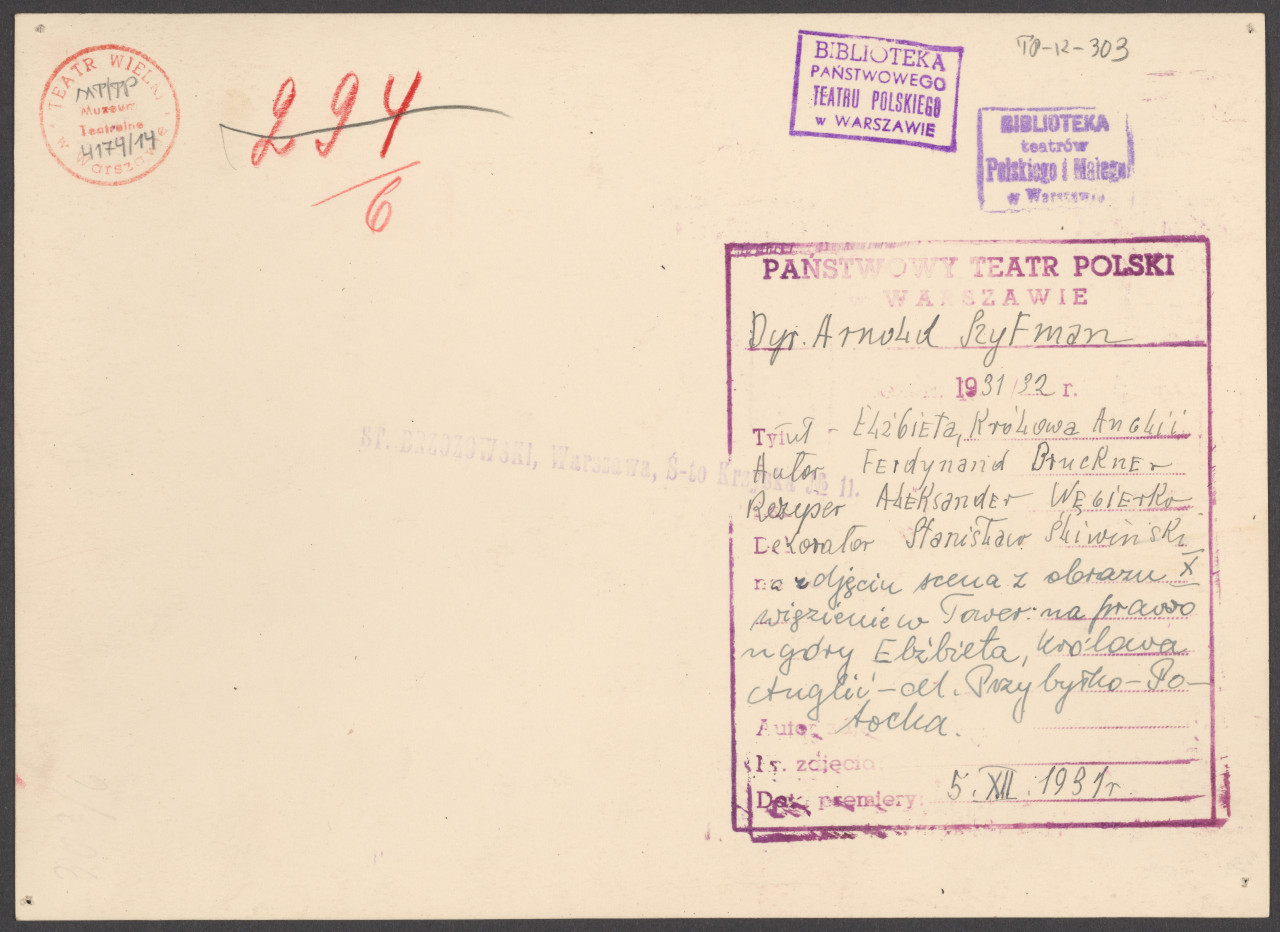 TEATR WIELKI
w Warszawie
MT/TP
Muzeum
Teatralne
4174/14
294
6
BIBLIOTEKA
PAŃSTWOWEGO
TEATRU POLSKIEGO
w WARSZAWIE
TP-R-303
BIBLIOTEKA
teatrów
Polskiego i Małego
w Warszawie
PAŃSTWOWY TEATR POLSKI
WARSZAWIE
Dyr. Arnold Szyfman
1931/32 r.
Tytuł - Elżbieta, Królowa Anglii
Autor Ferdynand Bruckner
Reżyser Aleksander Węgierko
Dekorator Stanisław Śliwiński
na zdjęciu scena z obrazu X
więzienie w Tower: na prawo
u góry Elżbieta, Królowa
Anglii - art. Przybyłko-Po-
tocka.
Autor
Nr. zdjęcia:
Data premiery: 5.XII.1931r.
ST. BRZOZOWSKI, Warszawa, Ś-to Krzyska № 11.